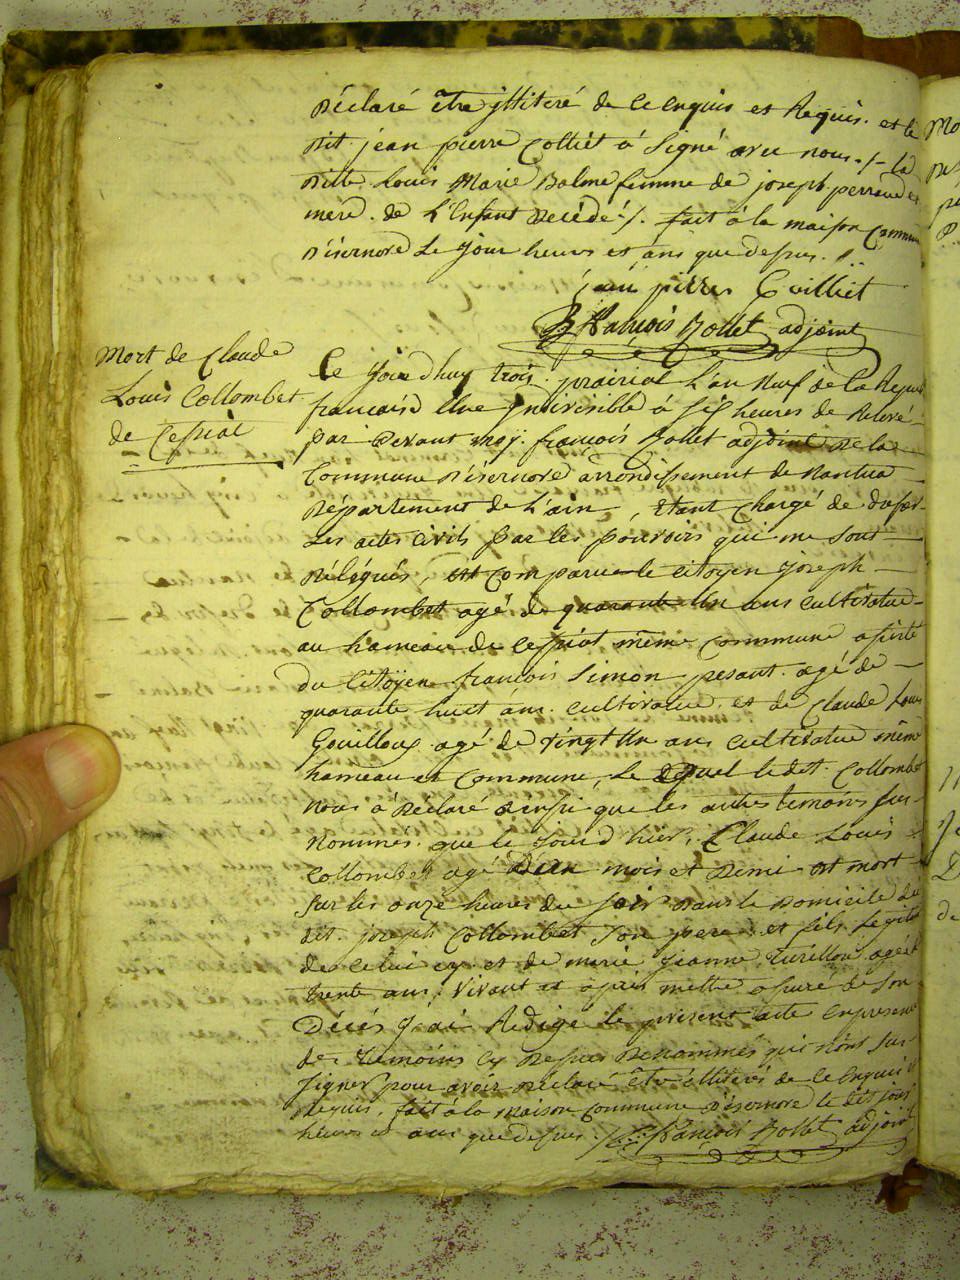 Déclaré être yllitéré de ce enquis et Requis. et le
dit jean pierre Colliet à Signé avec nous ./. la
ditte Louis Marie Balme femme de joseph perraud et
mère de L'Enfant décédé ./. fait à la maison Commune
D'isernore Le jour heures et ans que dessus. /.
jean pierre Cuilliet
François Rollet adjoint
Mort de Claude
Louis Collombet
de Cessiat
Ce jourdhuy trois prairial L'an Neuf de La Repub
francaise Une Indivisible à six heures de Relevé
par devant moy françois Rollet adjoint de la
Commune D'isernore arrondissement de Nantua
Département de L'ain, Etant Chargé de dresser
Les actes Civils par les pouvoirs qui me sont
Délégués, est comparue le citoyen joseph
Collombet agé de quarante Un ans cultivateur
au hameau de cessiat même commune assisté
du Citoyen françois Simon pesant agé de
quarante huit ans cultivateur et de Claude Louis
Gouilloux agé de vingt Un ans cultivateur même
hameau et commune, Le dit Collombet
nous à Déclaré ainsi que les autres temoins sus
nommés que le jourd'hier, Claude Louis
Collombet agé D'un mois et Demi est mort
sur les onze heures du soir dans le Domicile du
dit joseph Collombet son pere et fils Legitime
de celui cy et de marie jeanne agée de
trente ans, vivant et après m'etre assuré de son
Décès j'ai Redigé le présent acte en presence
des temoins cy dessus denommés qui n'ont sus
signer pour avoir Déclaré être illiterés de ce Enquis et
Requis, fait à la maison commune D'isernore le dit jour
heures et ans que dessus ./. françois Rollet adjoint